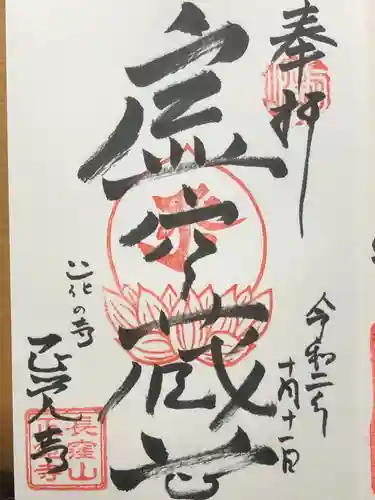 奉拝
令和二年
十月十一日
虚空蔵尊
花の寺
正覚寺
長窪山
正覚寺